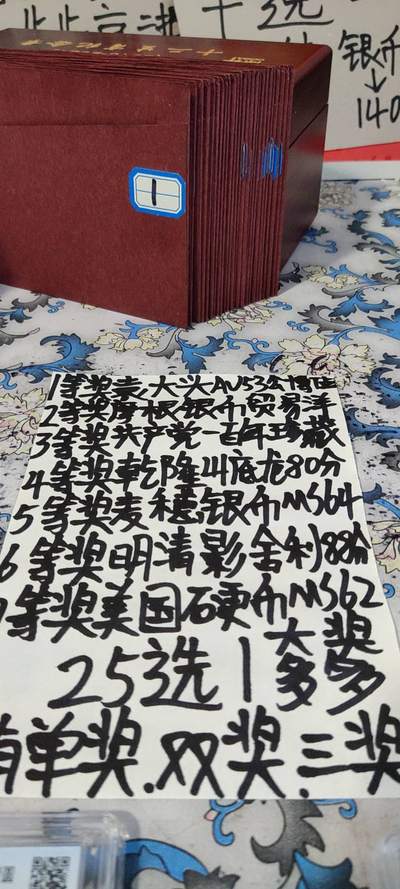 十选
银币
↓
140
1
1等奖袁大头AU53公博
2等奖摩根银币贸易洋
3等奖共产党一百年珍藏
4等奖乾隆山底龙80分
5等奖麦穗银币MS64
6等奖明清影舍利88分
等奖美国硬币MS62
25选1大奖多多
有单奖.双奖.三奖